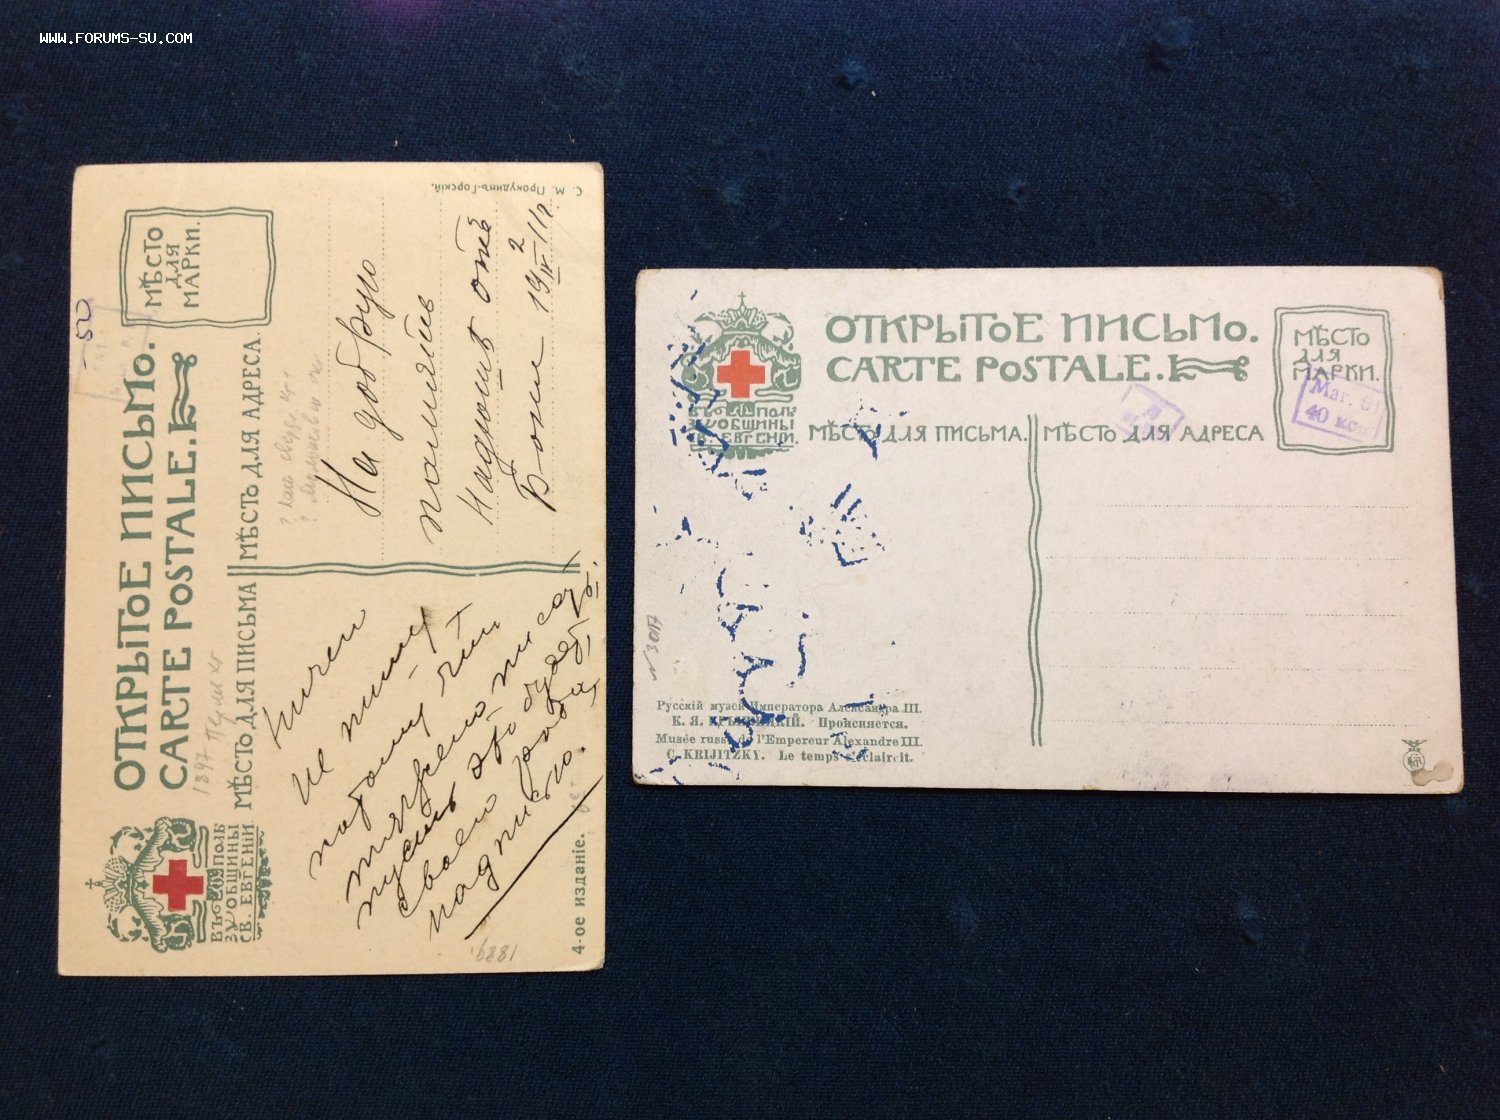 WWW.FORUMS-SU.COM
ОТКРЫТОЕ ПИСЬМО.
CARTE POSTALE.
МѢСТО
ДЛЯ
МАРКИ.
ВЪ ПОЛЬЗУ ОБЩИНЫ
СВ. ЕВГЕНІИ.
МѢСТО ДЛЯ ПИСЬМА
МѢСТО ДЛЯ АДРЕСА.
50
Ничего
не пишу
потому что
тяжело писать,
пусть это будетъ
своего рода
надписью.
На добрую
память
Надюшѣ отъ
Бони 19 2/IV 11 г.
С. М. Прокудинъ-Горскій.
4-ое изданіе.
ОТКРЫТОЕ ПИСЬМО.
CARTE POSTALE.
МѢСТО
ДЛЯ
МАРКИ.
Маг. 6
40 коп
ВЪ ПОЛЬЗУ ОБЩИНЫ
СВ. ЕВГЕНІИ.
МѢСТО ДЛЯ ПИСЬМА.
МѢСТО ДЛЯ АДРЕСА
Русскій музей Императора Александра III.
К. Я. КРЫЖИЦКІЙ. Проясняется.
Musée russe de l'Empereur Alexandre III.
C. KRIJITZKY. Le temps s'éclaircit.